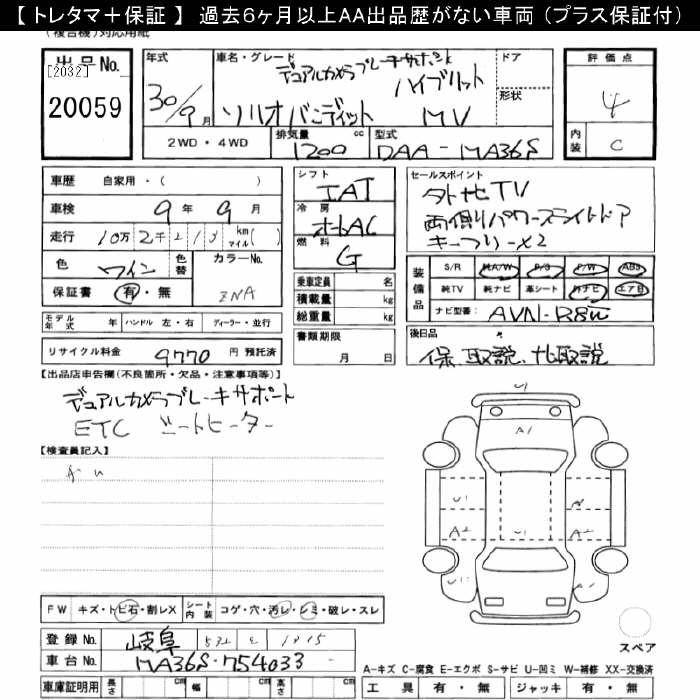 【 トレタマ＋保証 】 過去６ヶ月以上ＡＡ出品歴がない車両（プラス保証付）
（複合機）対応用紙
出品No.
[2032]
20059
年式
30/9月
車名・グレード
デュアルカメラブレーキサポート
ハイブリット
ソリオバンディット MV
ドア
形状
評価点
4
内装
C
2WD・4WD
排気量 1200 cc
型式 DAA-MA36S
車歴 自家用・( )
車検 9年9月
走行 10万2千 km マイル( )
色 ワイン
色替
カラーNo. ZNA
保証書 有・無
モデル年式 年 ハンドル 左・右 ディーラー・並行
リサイクル料金 9770 円 預託済
シフト
IAT
冷房
オートAC
燃料
G
乗車定員 名
積載量 kg
総重量 kg
書類期限
月 日
セールスポイント
外地TV
両側パワースライドドア
キーフリーx2
装備品
S/R 純A/W P/S P/W ABS
純TV 純ナビ 革シート 外ナビ エアB
ナビ型番 AVN-R8W
後日品
保、取説、ナビ取説
【出品店申告欄(不良箇所・欠品・注意事項等)】
デュアルカメラブレーキサポート
ETC シートヒーター
【検査員記入】
U1
A1
U1
A2
A2
U1
FW キズ・トビ石・割レX
シート内装 コゲ・穴・汚レ・シミ・破レ・スレ
登録No. 岐阜
車台No. MA36S-754033
車庫証明用 長さ cm 幅 cm 高さ cm
スペア
A-キズ C-腐食 E-エクボ S-サビ U-凹ミ W-補修 XX-交換済
工具 有・無 ジャッキ 有・無